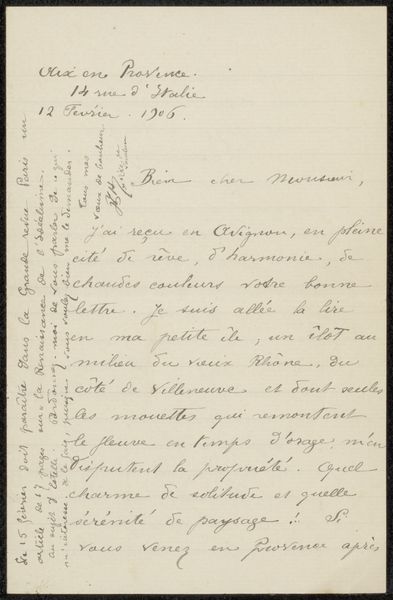 Aix en Provence.
14 rue d'Italie
12 Février. 1906.
Bien cher Monsieur,
J'ai reçu en Avignon, en pleine
cité de rêve, d'harmonie, de
chaudes couleurs votre bonne
lettre. Je suis allée la lire
en ma petite île, un îlot au
milieu du vieux Rhône, du
côté de Villeneuve et dont seules
les mouettes qui remontent
le fleuve en temps d'orage m'en
disputent la propriété. Quel
charme de solitude et quelle
sérénité de paysage !. Si
vous venez en Provence après
Le 15 février doit paraître dans la Grande revue Paris un
article de 17 pages sur "la Renaissance de l'Idéalisme
au sujet d' Pardonnez-moi de vous parler de ce qui
m'intéresse, de le faire, puisque vous voulez bien me le demander.
Tous mes
vœux de bonheur